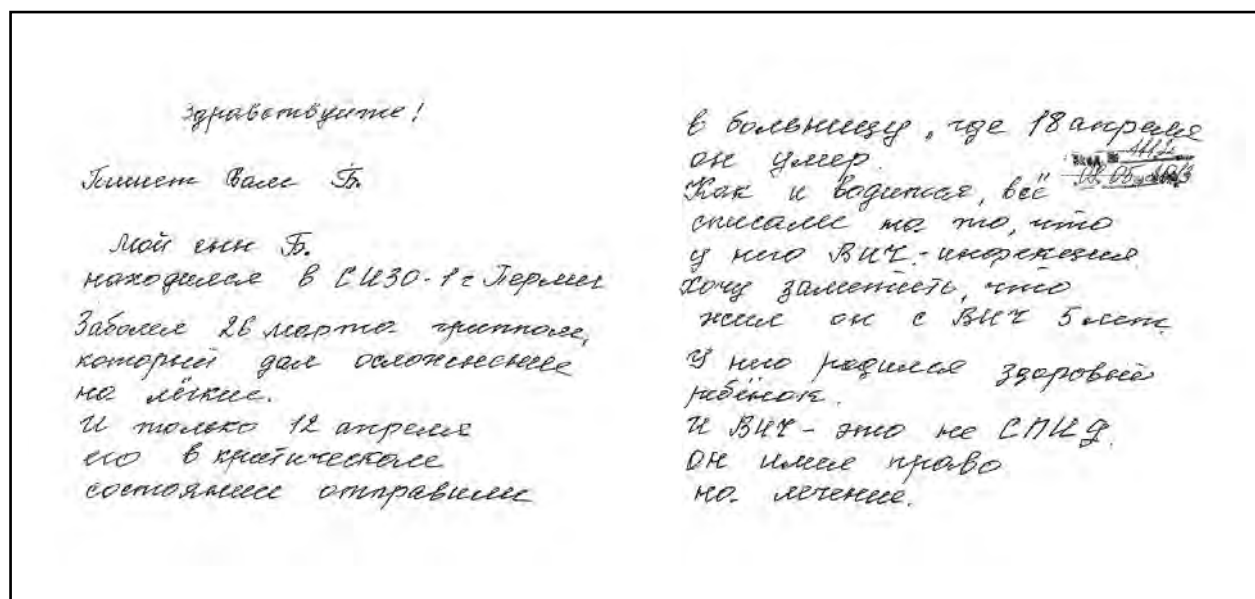 Здравствуйте!
Пишет Вам Б.
Мой сын Б.
находился в СИЗО-1 г Перми
Заболел 26 марта гриппом,
который дал осложнение
на лёгкие.
И только 12 апреля
его в критическом
состоянии отправили
в больницу, где 18 апреля
он умер.
Вход №
Как и водится, всё
списали на то, что
у него ВИЧ-инфекция.
Хочу заметить, что
жил он с ВИЧ 5 лет.
У него родился здоровый
ребёнок.
И ВИЧ - это не СПИД.
Он имел право
на лечение.